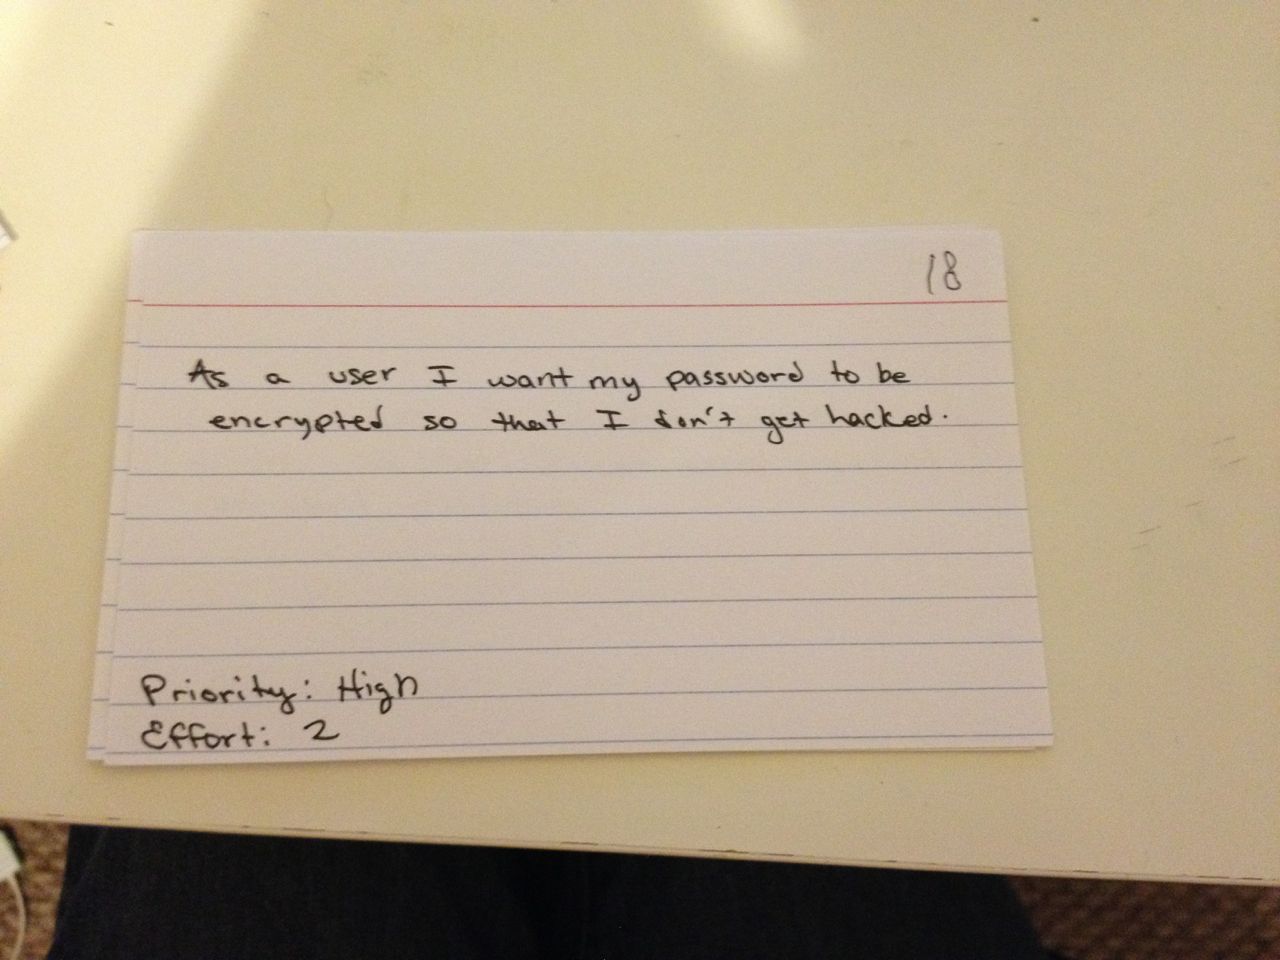 18
As a user I want my password to be
encrypted so that I don't get hacked.
Priority: High
Effort: 2